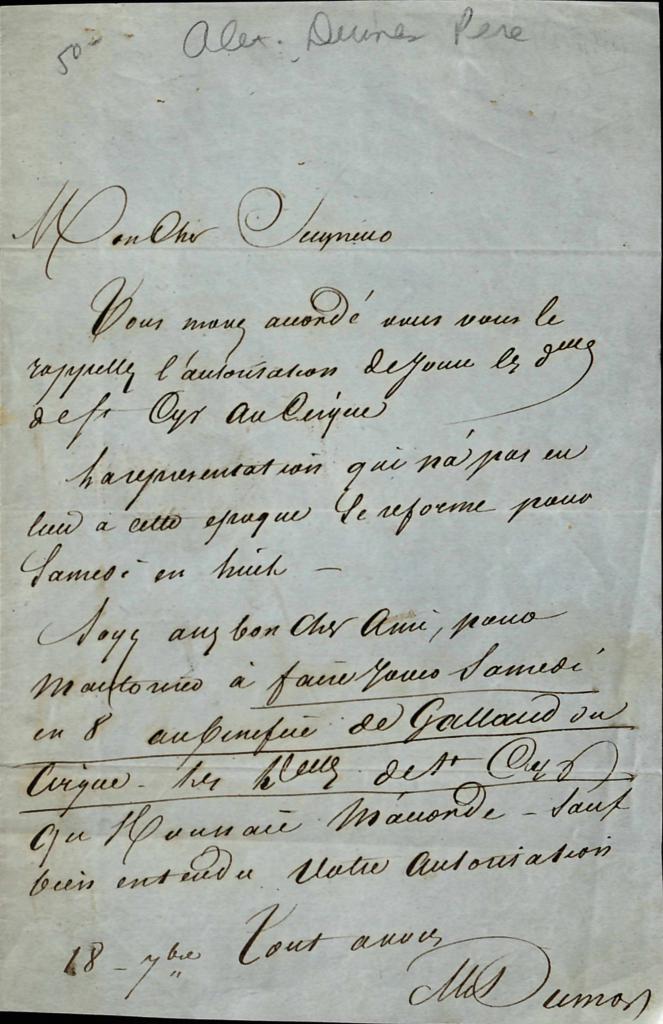 50-
Alex. Dumas Pere
Mon Cher
Vous m'avez accordé vous vous le
rappellez l'autorisation de jouer les dlles
de St Cyr au Cirque
La representation qui n'a pas eu
lieu a cette epoque se reforme pour
Samedi en huit —
Soyez assez bon Cher Ami, pour
m'autoriser à faire jouer Samedi
en 8 au benefice de Galland du
Cirque - les Delles de St Cyr
qu' Houssaie m'accorde - sauf
bien entendu votre autorisation
Tout a vous
18 - 7bre
Alex Dumas